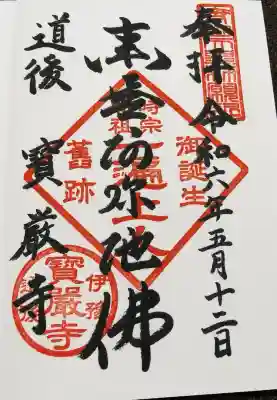 奉拝 令和六年五月十二日
南無阿弥陀佛
道後 寶厳寺
御誕生
舊跡
時宗
祖
一遍上人
伊豫
道後
寶嚴寺